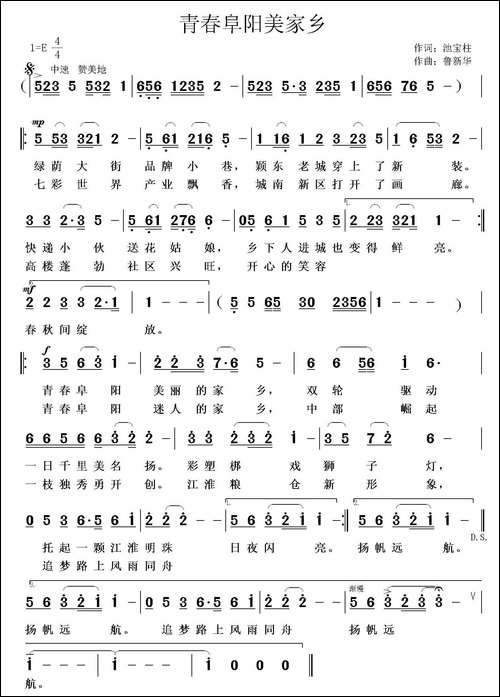 青春阜阳美家乡
1=E 4/4
作词：池宝柱
作曲：鲁新华
中速 赞美地
(523 5 532 1 | 656 1235 2 - | 523 5·3 235 1 | 656 76 5 -)
mp
5 53 321 2 - | 5 61 216 5 - | 1 16 1 2 3 23 5 | 1 6 53 2 -
绿荫大街 品牌小巷，颍东老城穿上了新装。
七彩世界 产业飘香，城南新区打开了画廊。
3 3 2·3 5 - | 5 61 276 6 - | 05 61 5 3 5 | 2 23 321 1 -
快递小伙 送花姑娘，乡下人进城也变得鲜亮。
高楼蓬勃 社区兴旺，开心的笑容
mf
2 2 3 3 2·1 | 1 - - - | (5 5 65 30 2356 | 1 - - -)
春秋间绽放。
f
3 5 6 3 1 - | 2 2 3 7·6 5 - | 6 6 56 1 6·
青春阜阳 美丽的家乡，双轮驱动
青春阜阳 迷人的家乡，中部崛起
6 6 5 6 6 3 2 - | 2 3 3 2 2 1 - | 3 5 7 2 6 -
一日千里美名扬。彩塑梆戏狮子灯，
一枝独秀勇开创。江淮粮仓新形象，
0 5 3 6·5 6 1 | 2 2 2 - - | 5 6 3 2 1 1 - | 5 6 3 2 1 1 - -
D.S.
托起一颗江淮明珠 日夜闪亮。扬帆远航。
追梦路上风雨同舟
渐慢
5 6 3 2 1 1 - | 0 5 3 6·5 6 1 | 2 2 2 - - | 5 6 3 2 3 - V
扬帆远航。追梦路上风雨同舟 扬帆远
1 - - - | 1 - - - | 1 0 0 0
航。